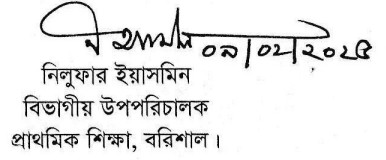 ০৯/০২/২০২৫
নিলুফার ইয়াসমিন
বিভাগীয় উপপরিচালক
প্রাথমিক শিক্ষা, বরিশাল।